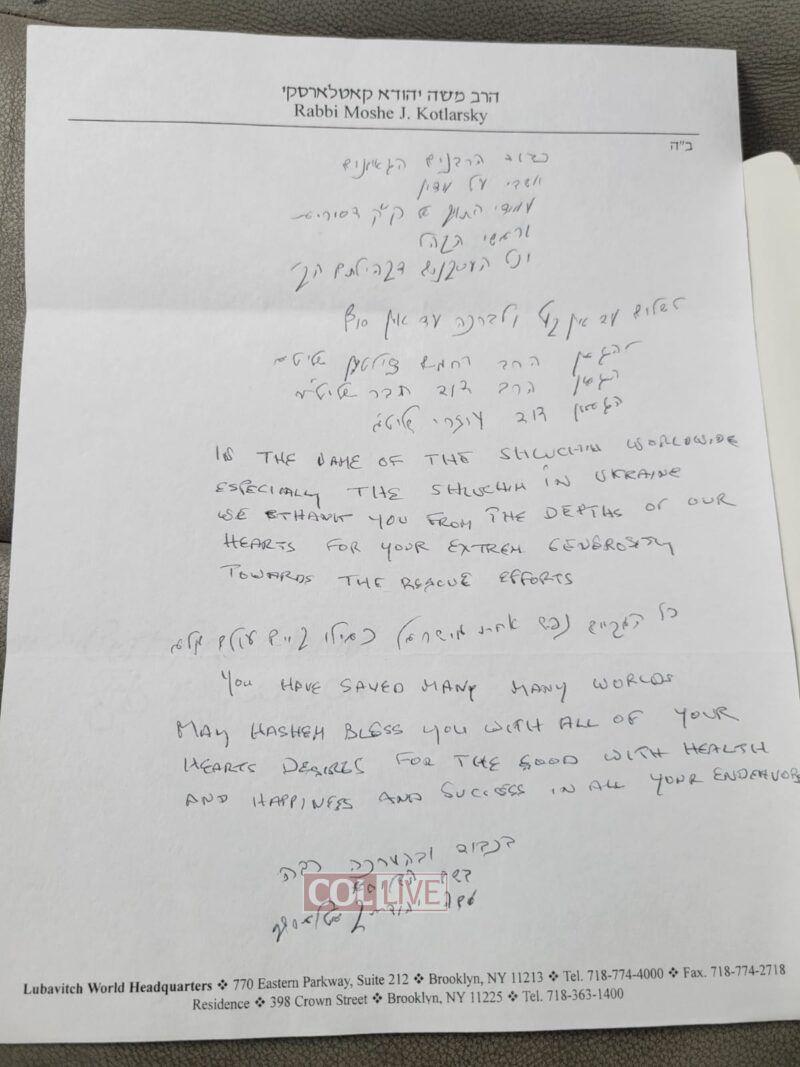 הרב משה יהודא קאטלארסקי
Rabbi Moshe J. Kotlarsky
ב"ה
כבוד הרבנים הגאונים
יושבי על מדין
עמודי התווך
וראשי הקהל
וכל העסקנים דקהילתם הק'
לשלום עד אין קץ ולברכה עד אין סוף
הגאון הרב שליט"א
הגאון הרב דוד שליט"א
הגאון דוד עוזרי שליט"א
IN THE NAME OF THE SHLUCHIM WORLDWIDE
ESPECIALLY THE SHLUCHIM IN UKRAINE
WE THANK YOU FROM THE DEPTHS OF OUR
HEARTS FOR YOUR EXTREM GENEROSITY
TOWARDS THE RESCUE EFFORTS
כל המקיים נפש אחת מישראל כאילו קיים עולם מלא
YOU HAVE SAVED MANY MANY WORLDS
MAY HASHEM BLESS YOU WITH ALL OF YOUR
HEARTS DESIRES FOR THE GOOD WITH HEALTH
AND HAPPINESS AND SUCCESS IN ALL YOUR ENDEAVORS
בכבוד ובהערכה רבה
בשם השלוחים
COLLIVE
משה יהודה קאטלארסקי
Lubavitch World Headquarters ❖ 770 Eastern Parkway, Suite 212 ❖ Brooklyn, NY 11213 ❖ Tel. 718-774-4000 ❖ Fax. 718-774-2718
Residence ❖ 398 Crown Street ❖ Brooklyn, NY 11225 ❖ Tel. 718-363-1400